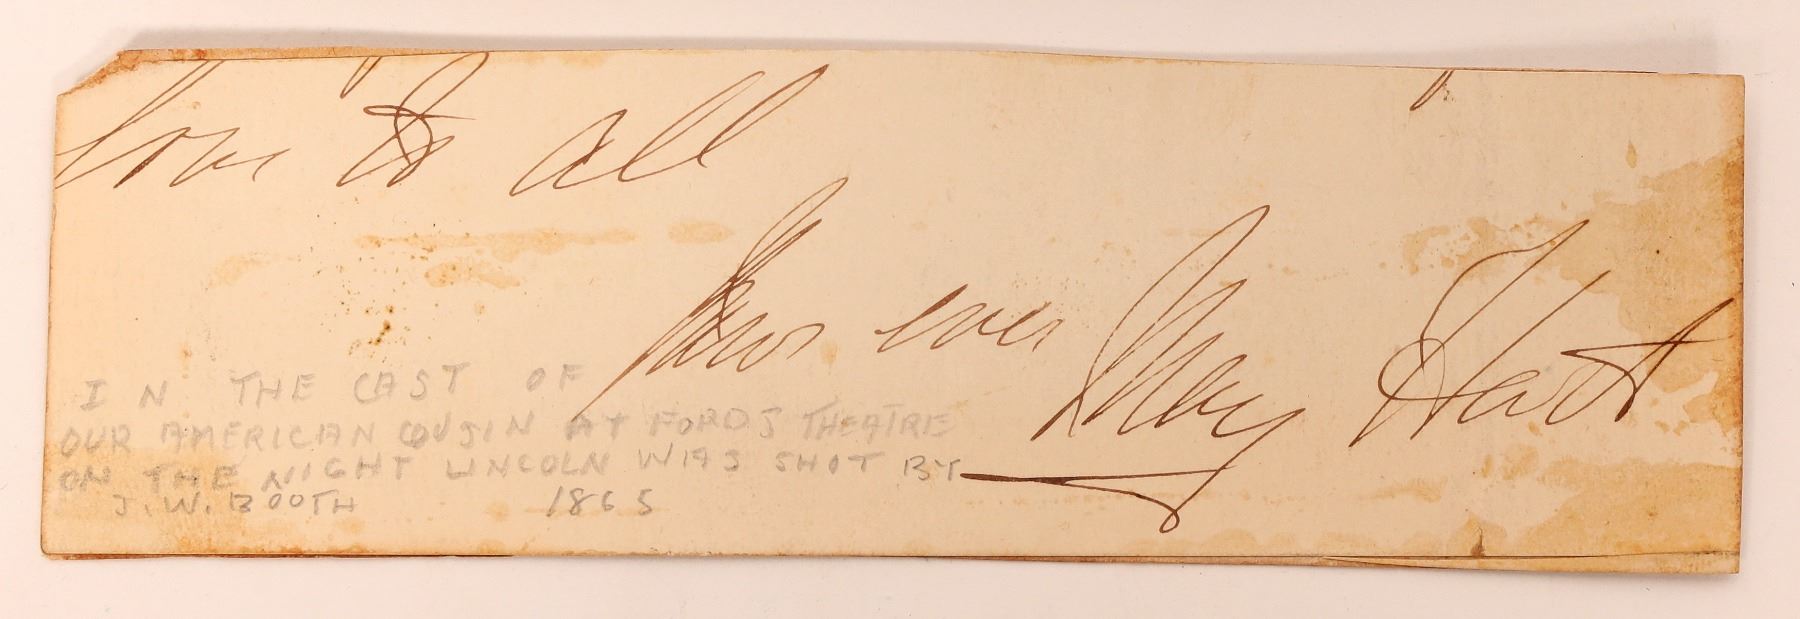 love to all
Yours ever
May Hart
IN THE CAST OF
OUR AMERICAN COUSIN AT FORDS THEATRE
ON THE NIGHT LINCOLN WAS SHOT BY
J. W. BOOTH 1865